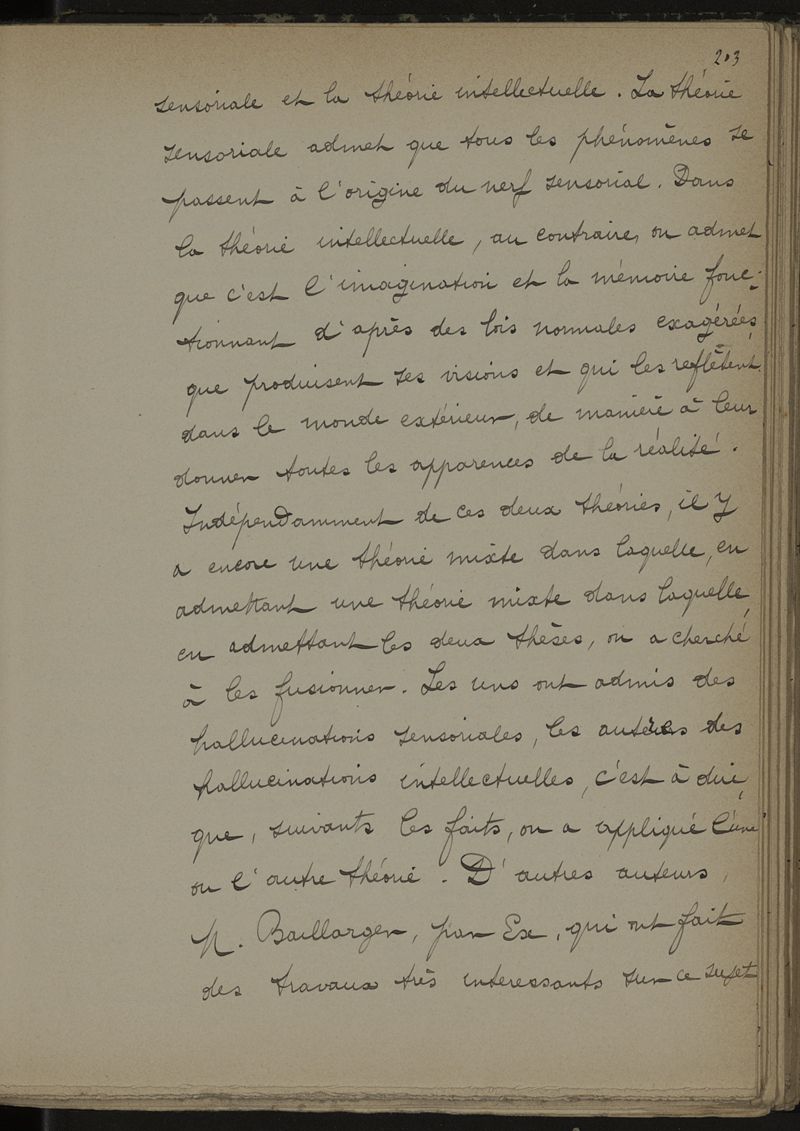 203
sensoriale et la théorie intellectuelle. La théorie
sensoriale admet que tous les phénomènes se
passent à l'origine du nerf sensorial. Dans
la théorie intellectuelle, au contraire, on admet
que c'est l'imagination et la mémoire fonc-
tionnant d'après des lois normales exagérées,
que produisent ses visions et qui les reflètent
dans le monde extérieur, de manière à leur
donner toutes les apparences de la réalité.
Indépendamment de ces deux théories, il y
a encore une théorie mixte dans laquelle, en
admettant une théorie mixte dans laquelle,
en admettant les deux thèses, on a cherché
à les fusionner. Les uns ont admis des
hallucinations sensoriales, les autres des
hallucinations intellectuelles, c'est à dire,
que, suivants les faits, on a appliqué l'une
ou l'autre théorie. D'autres auteurs,
M. Baillarger, par Ex, qui ont fait
des travaux très interessants sur ce sujet